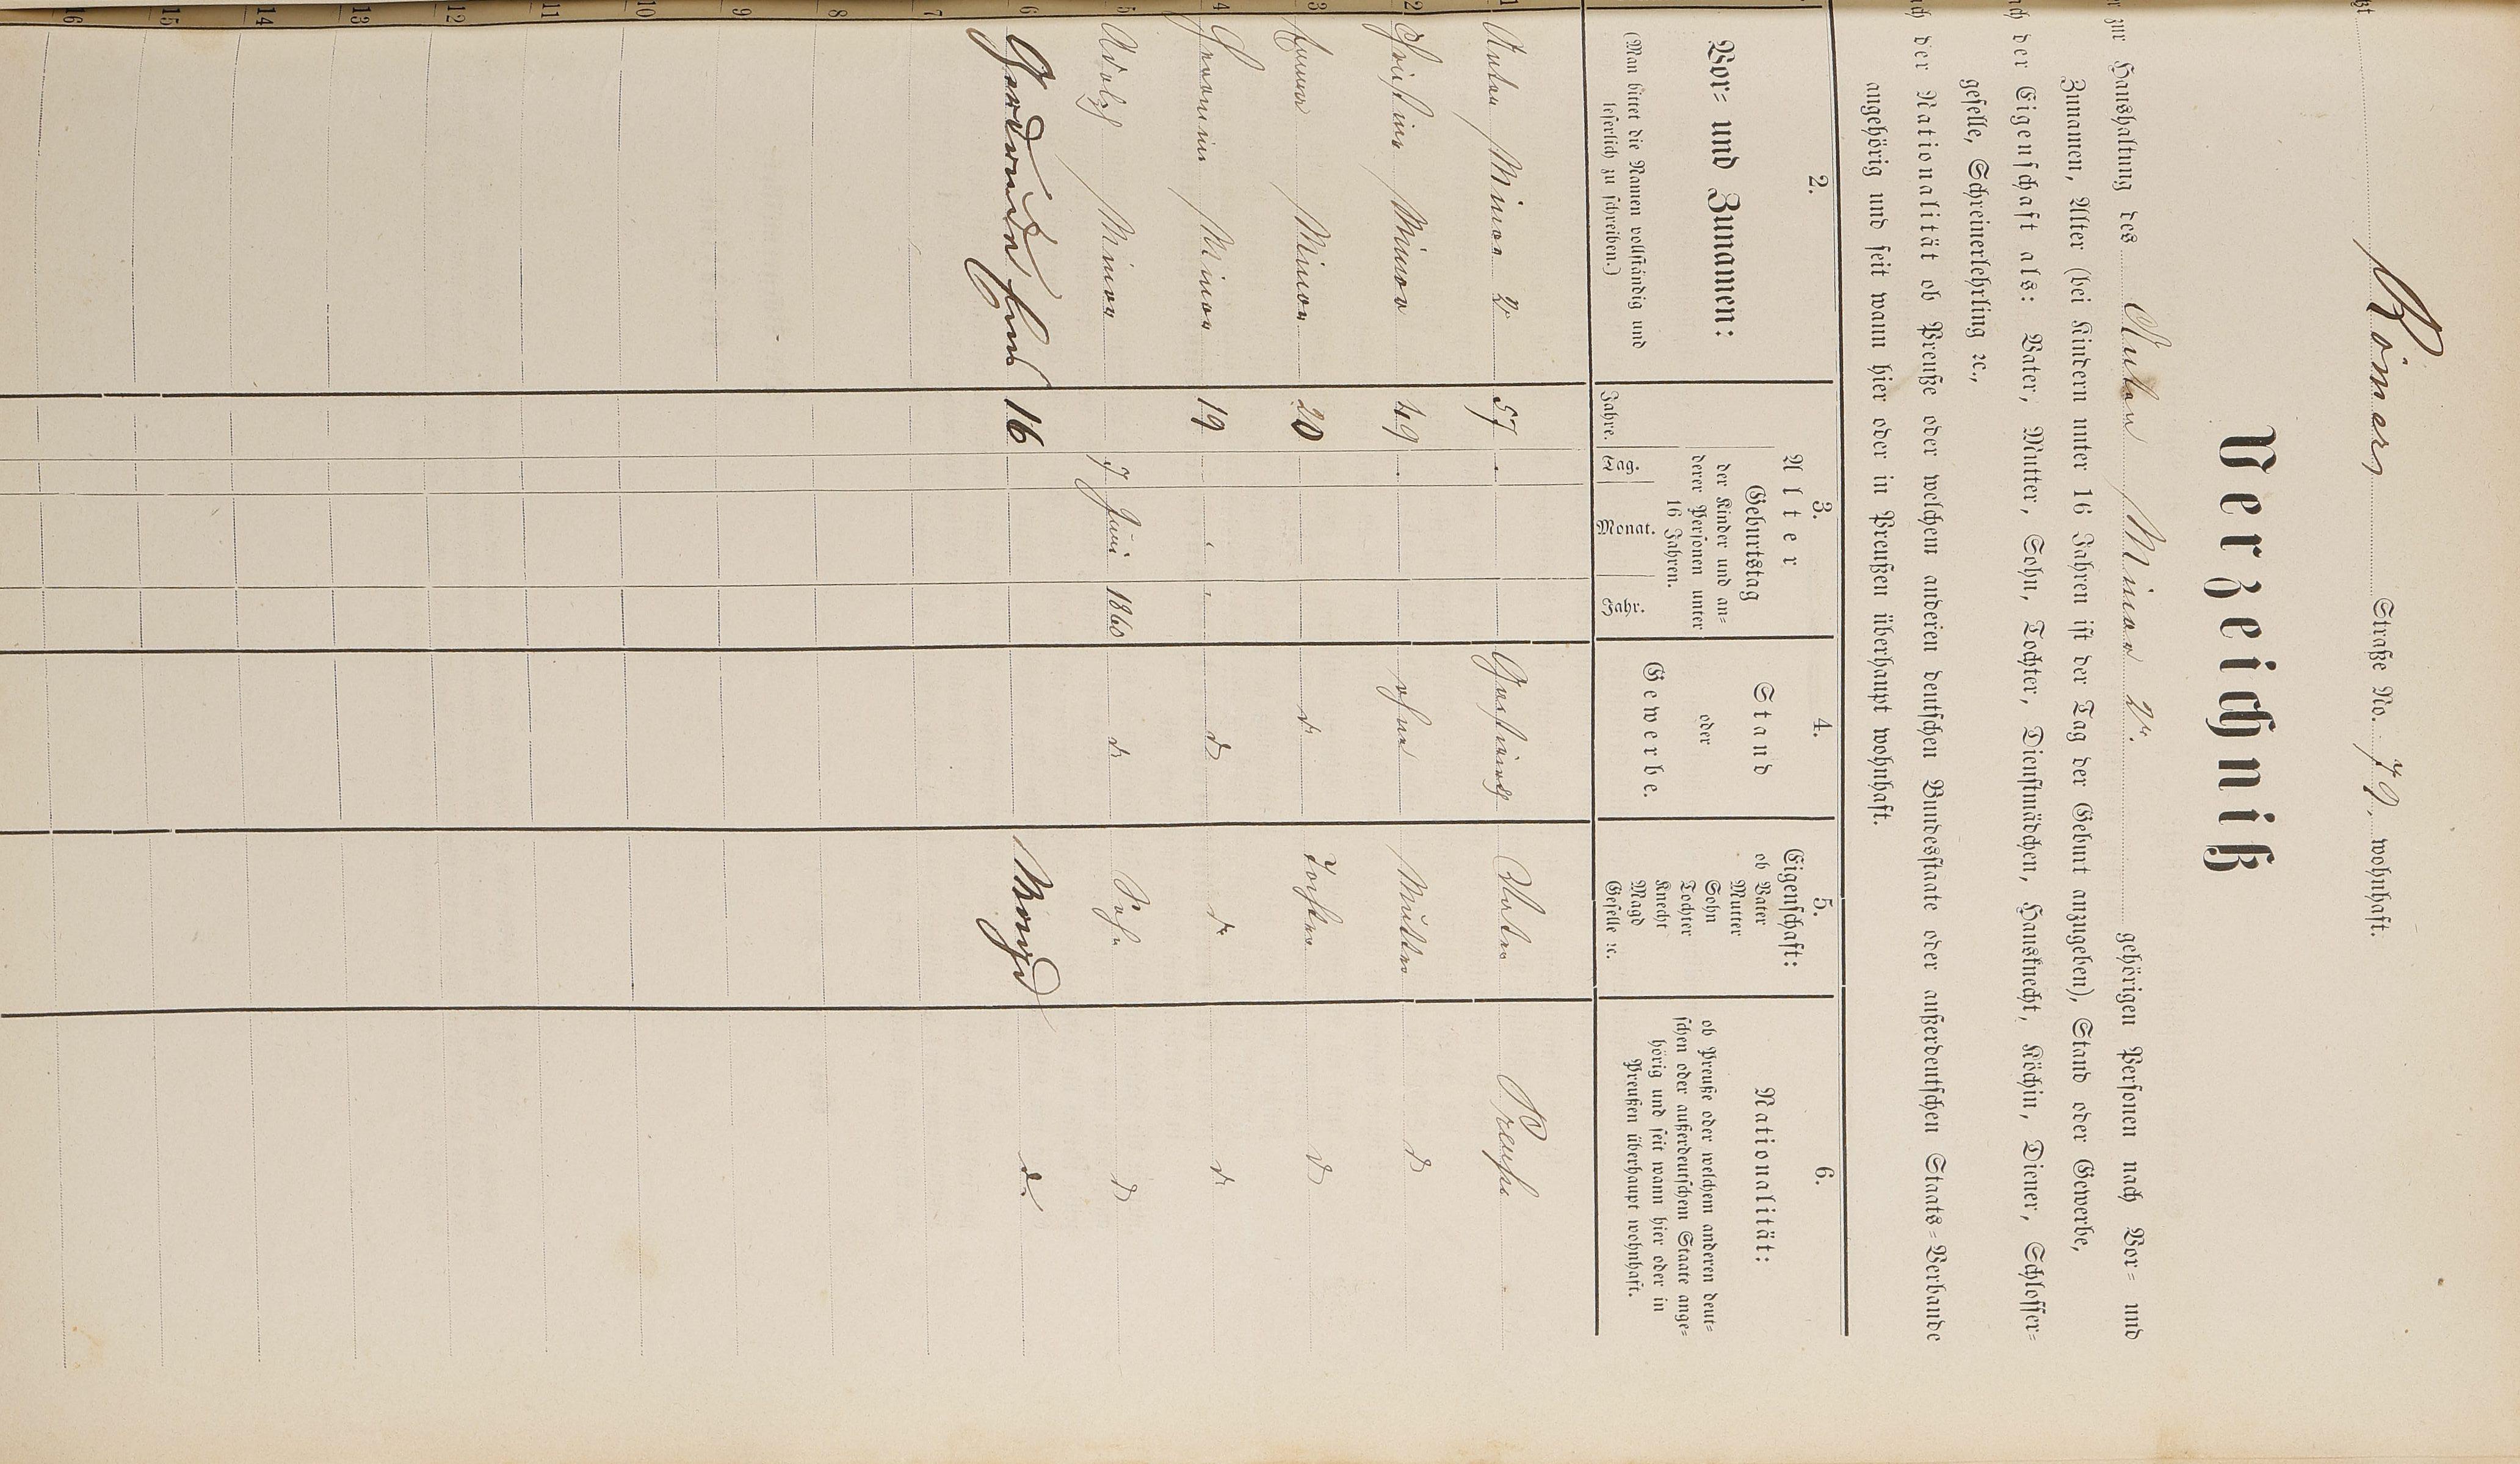 Römer Straße No. 79. wohnhaft.
Verzeichniß
zur Haushaltung des Anton Minor 2r. gehörigen Personen nach Vor- und
Zunamen, Alter (bei Kindern unter 16 Jahren ist der Tag der Geburt anzugeben), Stand oder Gewerbe,
der Eigenschaft als: Vater, Mutter, Sohn, Tochter, Dienstmädchen, Hausknecht, Köchin, Diener, Schlosser-
geselle, Schreinerlehrling ꝛc.,
der Nationalität ob Preuße oder welchem anderen deutschen Bundesstaate oder außerdeutschen Staats-Verbande
angehörig und seit wann hier oder in Preußen überhaupt wohnhaft.
2.
Vor- und Zunamen:
(Man bittet die Namen vollständig und
leserlich zu schreiben.)
3.
Alter
Jahre.
Geburtstag
der Kinder und an-
derer Personen unter
16 Jahren.
Tag. Monat. Jahr.
4.
Stand
oder
Gewerbe.
5.
Eigenschaft:
ob Vater
Mutter
Sohn
Tochter
Knecht
Magd
Geselle ꝛc.
6.
Nationalität:
ob Preuße oder welchem anderen deut-
schen oder außerdeutschem Staate ange-
hörig und seit wann hier oder in
Preußen überhaupt wohnhaft.
1 Anton Minor 2r 57 Gastwirth Vater Preuße
2 Christine Minor 49 ohne Mutter d
3 Emma Minor 20 d Tochter d
4 Hermine Minor 19 d d d
5 Adolph Minor 7 Juni 1860 d Sohn d
6 16 Magd d
7
8
9
10
11
12
13
14
15
16